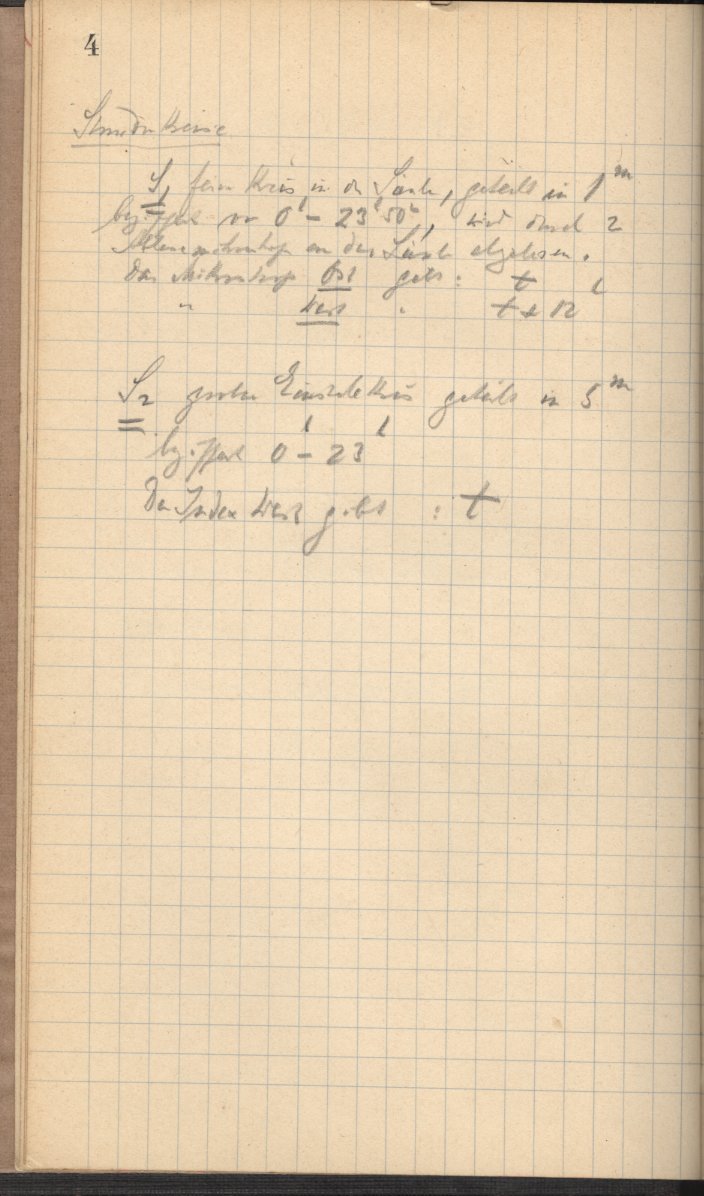 4
Stundenkreise
S₁ feiner Kreis in der Säule, geteilt in 1ᵐ
beziffert von 0ʰ – 23ʰ50ᵐ, wird durch 2
an der Säule abgelesen.
Das Mikroskop Ost gibt: t
" West " t + 12ʰ
S₂ grober Einstellkreis geteilt in 5ᵐ
beziffert 0ʰ – 23ʰ
Der Index West gibt : t